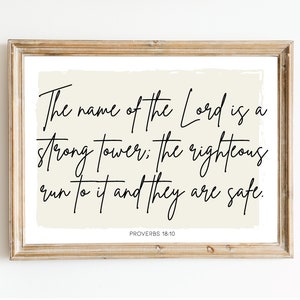 The name of the Lord is a
strong tower; the righteous
run to it and they are safe.
PROVERBS 18:10